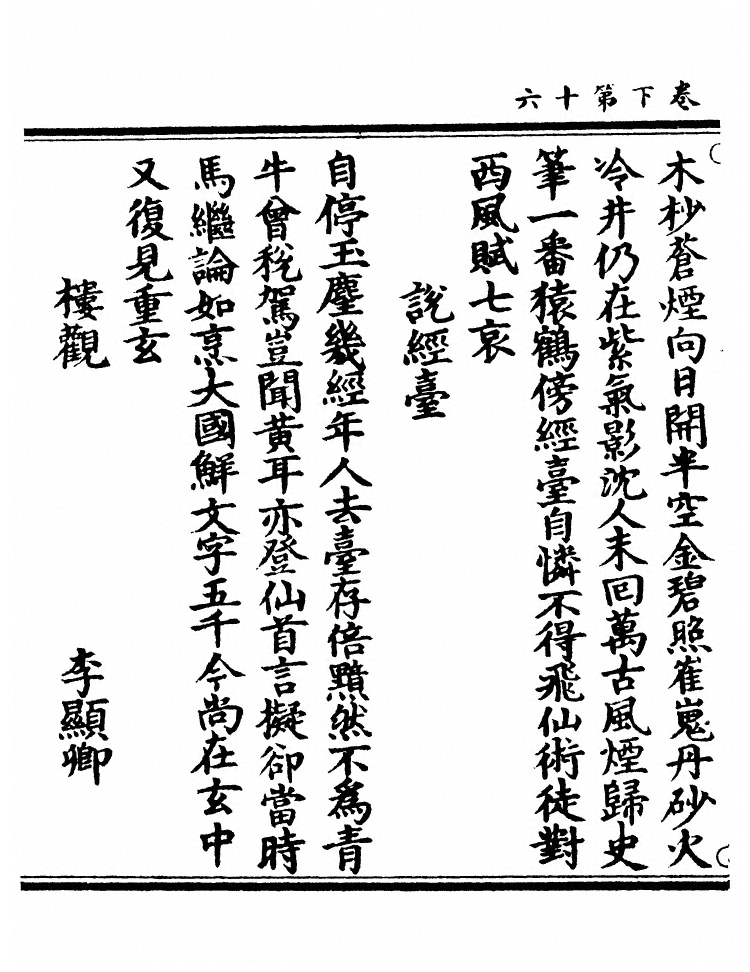 卷下第十六
木杪蒼煙向日開半空金碧照崔嵬丹砂火
冷井仍在紫氣影沈人未回萬古風煙歸史
筆一番猿鶴傍經臺自憐不得飛仙術徒對
西風賦七哀
說經臺
自停玉麈幾經年人去臺存倍黯然不為青
牛曾稅駕豈聞黃耳亦登仙首言擬卻當時
馬繼論如烹大國鮮文字五千今尚在玄中
又復見重玄
樓觀　李顯卿